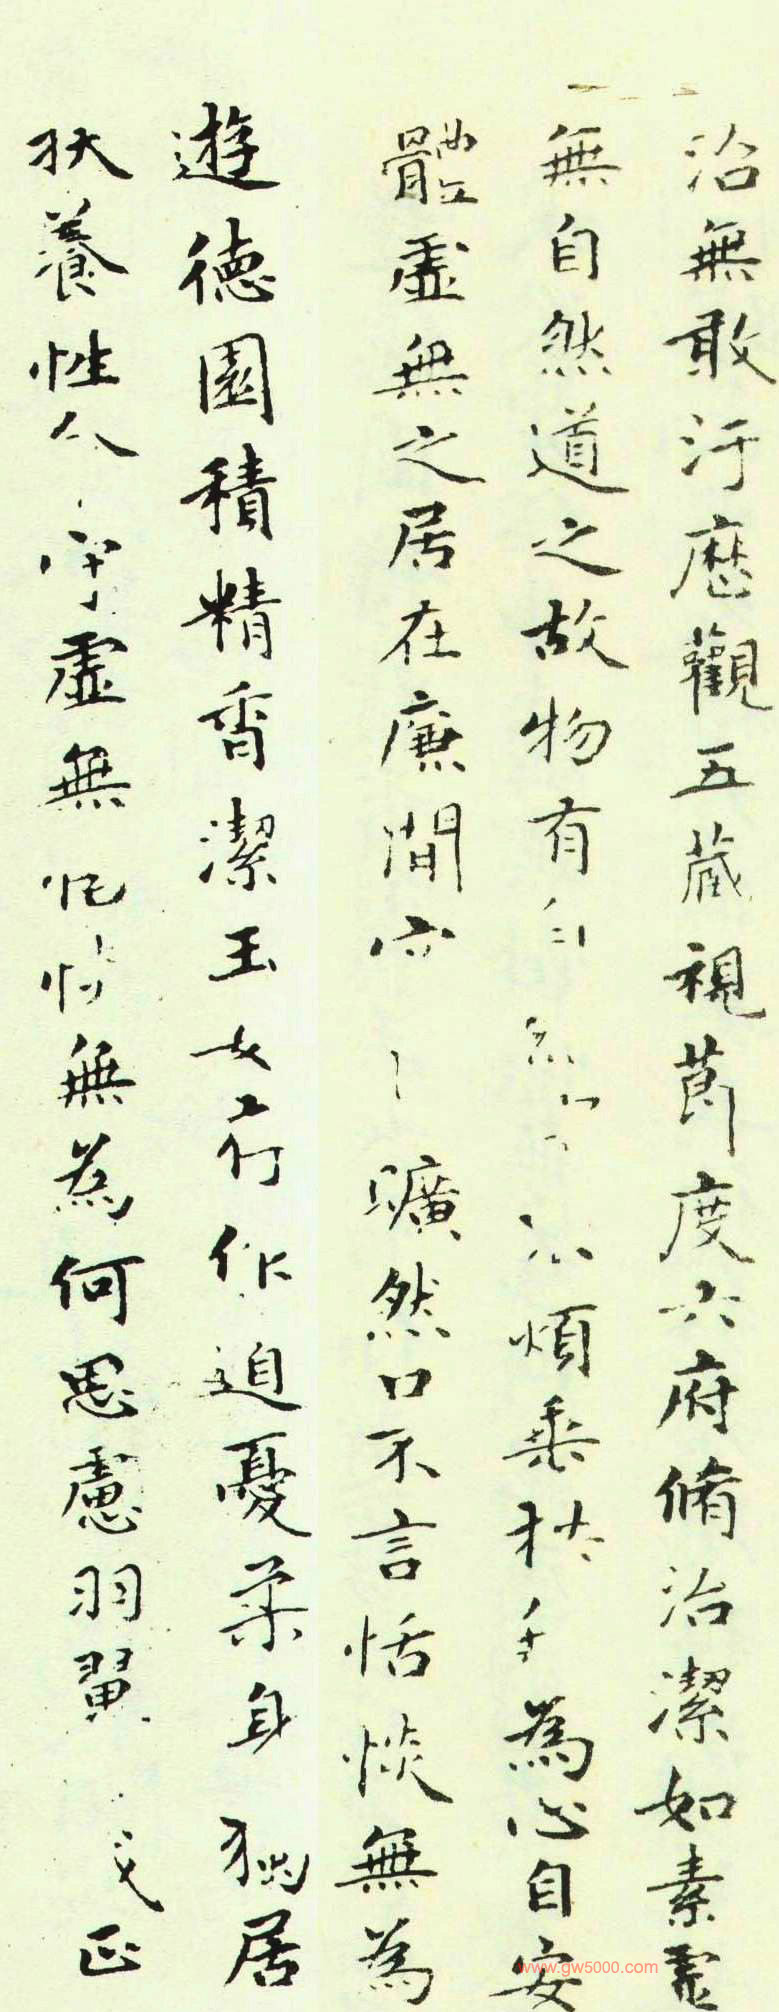 治無敢汙歷觀五藏視節度六府脩治潔如素虛
無自然道之故物有自然煩垂拱為心自安
體虛無之居在廉間曠然口不言恬惔無為
遊德園積精香潔玉女存作道憂柔身獨居
扶養性命守虛無恬惔無為何思慮羽翼正
www.gw5000.com